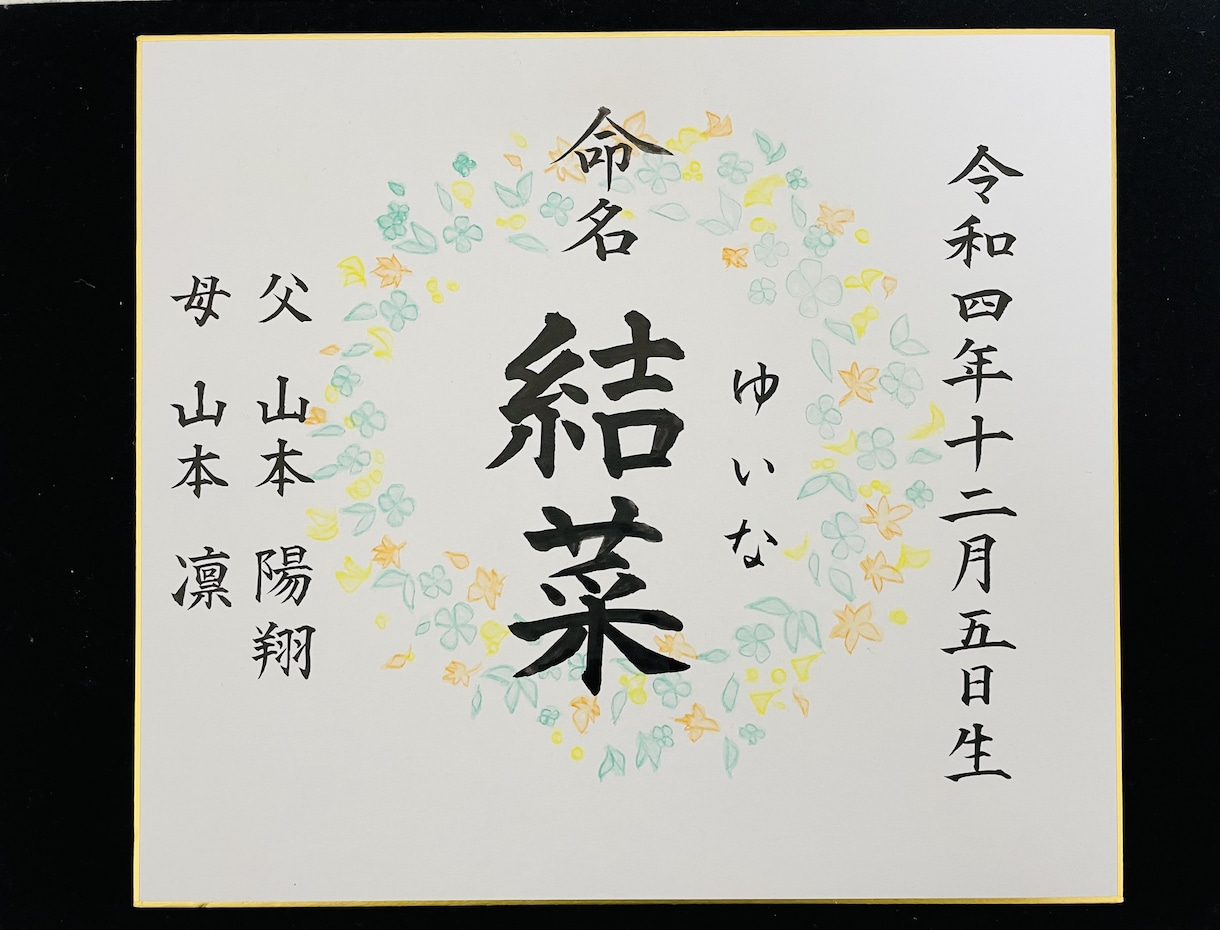 令和四年十二月五日生
命名
ゆいな
結菜
父 山本 陽翔
母 山本 凛